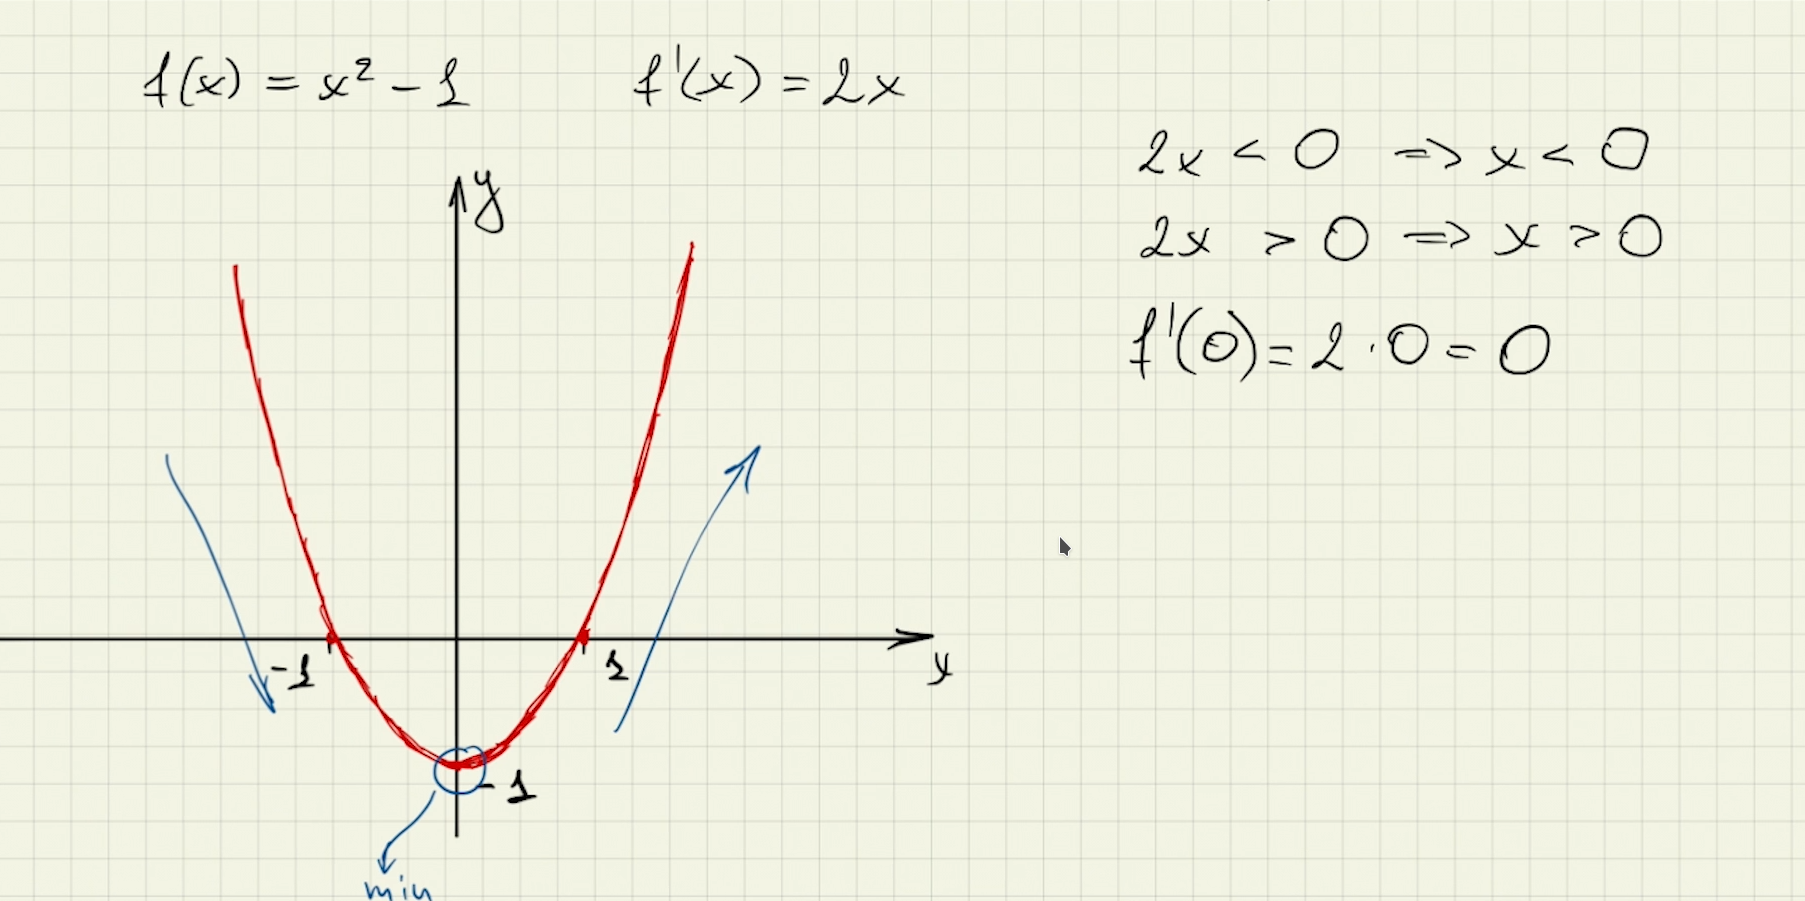 f(x) = x² - 1
f'(x) = 2x
2x < 0 => x < 0
2x > 0 => x > 0
f'(0) = 2 · 0 = 0
y
-1
1
x
-1
min